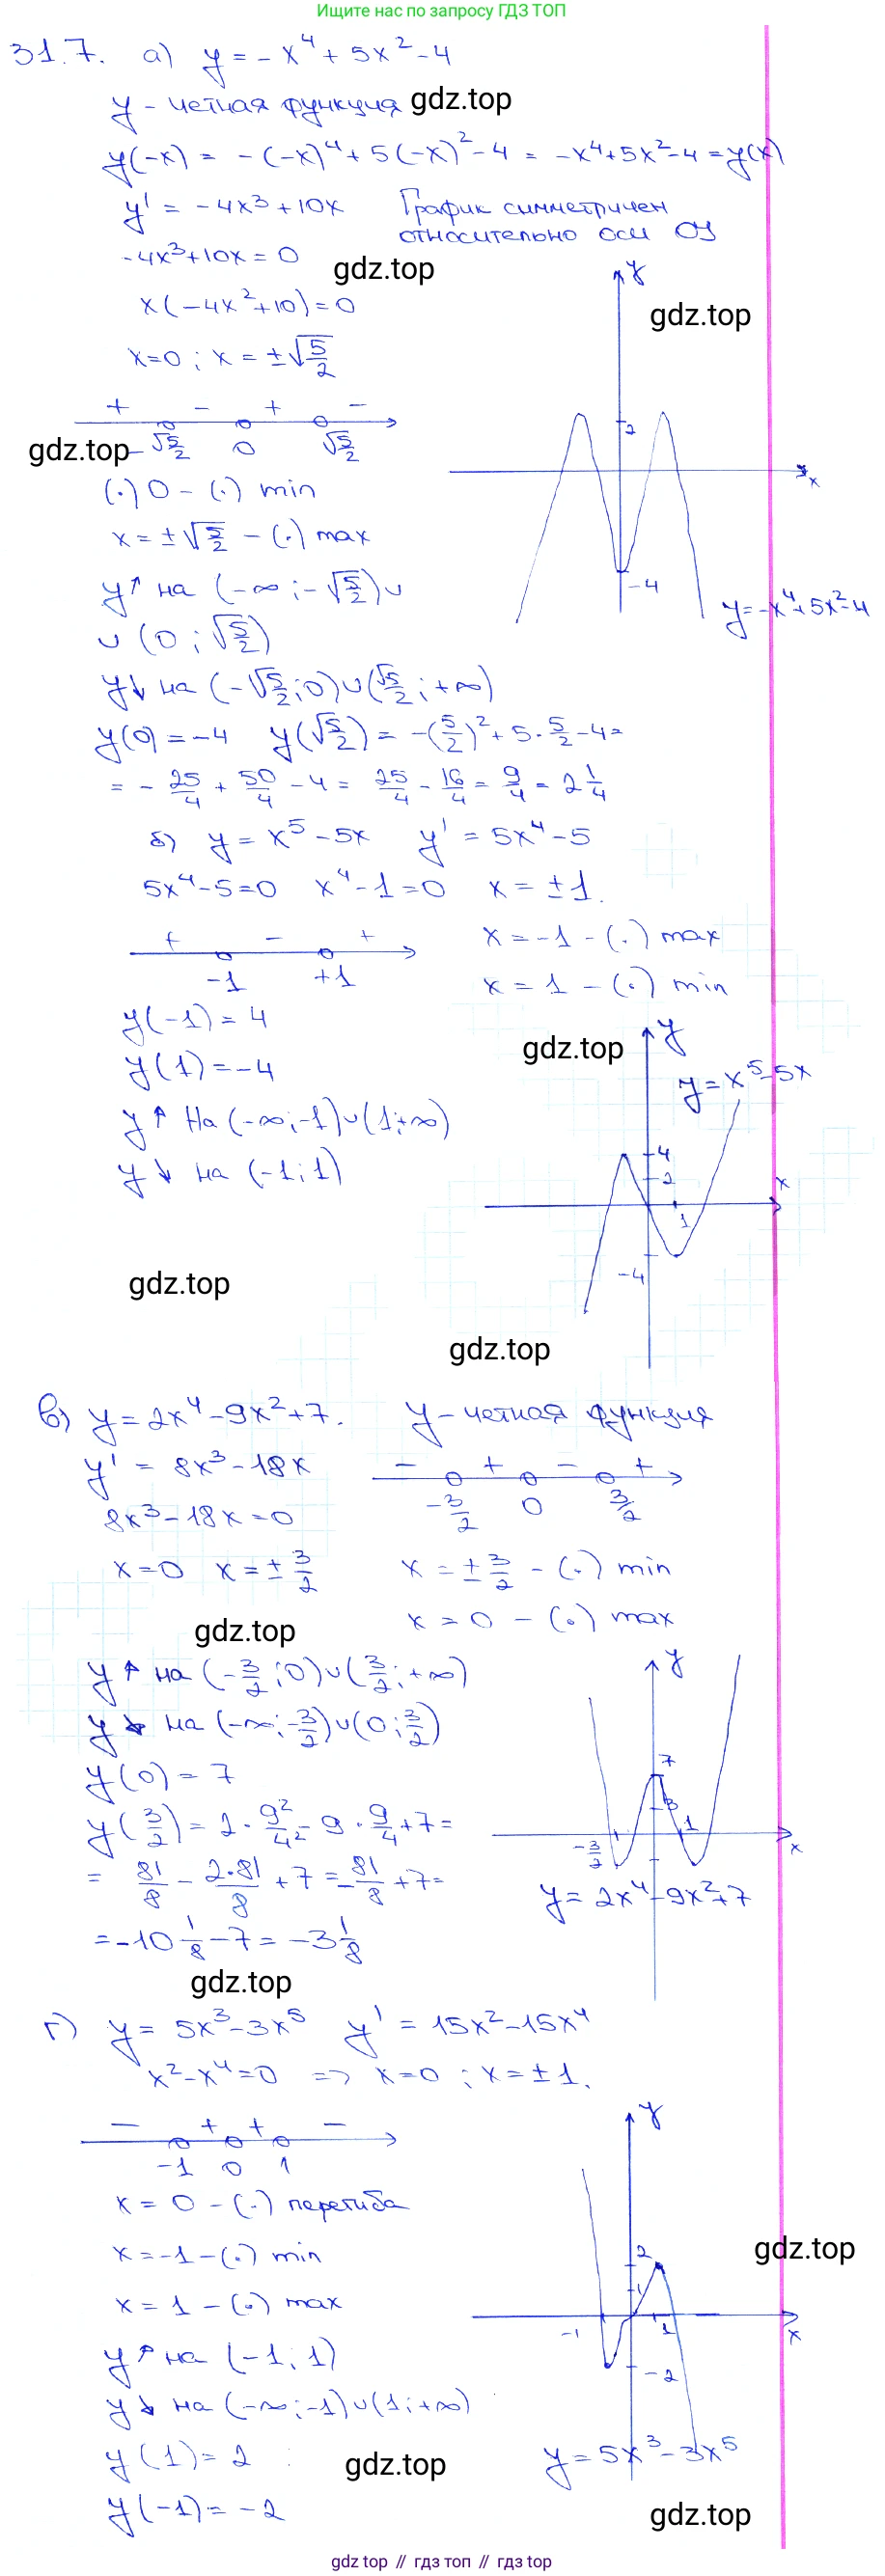 Ищите нас по запросу ГДЗ ТОП
31.7. а) y = -x⁴ + 5x² - 4
y - четная функция gdz.top
y(-x) = -(-x)⁴ + 5(-x)² - 4 = -x⁴ + 5x² - 4 = y(x)
y' = -4x³ + 10x График симметричен
относительно оси OY
-4x³ + 10x = 0
gdz.top
x(-4x² + 10) = 0
gdz.top
x = 0 ; x = ±√5/2
+ - + -
gdz.top
-√5/2 0 √5/2
(·) 0 - (·) min
x = ±√5/2 - (·) max
y↑ на (-∞ ; -√5/2) ∪
∪ (0 ; √5/2)
y↓ на (-√5/2 ; 0) ∪ (√5/2 ; +∞)
y
2
x
-4
y = -x⁴ + 5x² - 4
y(0) = -4 y(√5/2) = -(5/2)² + 5 · 5/2 - 4 =
= -25/4 + 50/4 - 4 = 25/4 - 16/4 = 9/4 = 2 1/4
б) y = x⁵ - 5x y' = 5x⁴ - 5
5x⁴ - 5 = 0 x⁴ - 1 = 0 x = ±1.
+ - +
-1 +1
x = -1 - (·) max
x = 1 - (·) min
y(-1) = 4
y(1) = -4
gdz.top
y↑ На (-∞ ; -1) ∪ (1 ; +∞)
y↓ на (-1 ; 1)
y
y = x⁵ - 5x
4
2
x
1
-4
gdz.top
gdz.top
в) y = 2x⁴ - 9x² + 7. y - четная функция
y' = 8x³ - 18x
- + - +
-3/2 0 3/2
8x³ - 18x = 0
x = 0 x = ±3/2 x = ±3/2 - (·) min
x = 0 - (·) max
gdz.top
y↑ на (-3/2 ; 0) ∪ (3/2 ; +∞)
y↓ на (-∞ ; -3/2) ∪ (0 ; 3/2)
y(0) = 7
y(3/2) = 2 · 9²/4² - 9 · 9/4 + 7 =
= 81/8 - 2·81/8 + 7 = -81/8 + 7 =
= -10 1/8 - 7 = -3 1/8
y
7
3
1
-3/2
x
y = 2x⁴ - 9x² + 7
gdz.top
г) y = 5x³ - 3x⁵ y' = 15x² - 15x⁴
x² - x⁴ = 0 => x = 0 ; x = ±1.
- + + -
-1 0 1
x = 0 - (·) перегиба
x = -1 - (·) min
x = 1 - (·) max
y↑ на (-1 ; 1)
y↓ на (-∞ ; -1) ∪ (1 ; +∞)
y(1) = 2
y(-1) = -2
y
2
gdz.top
1
-1
1
x
-2
y = 5x³ - 3x⁵
gdz.top
gdz.top
gdz top // гдз топ // gdz top